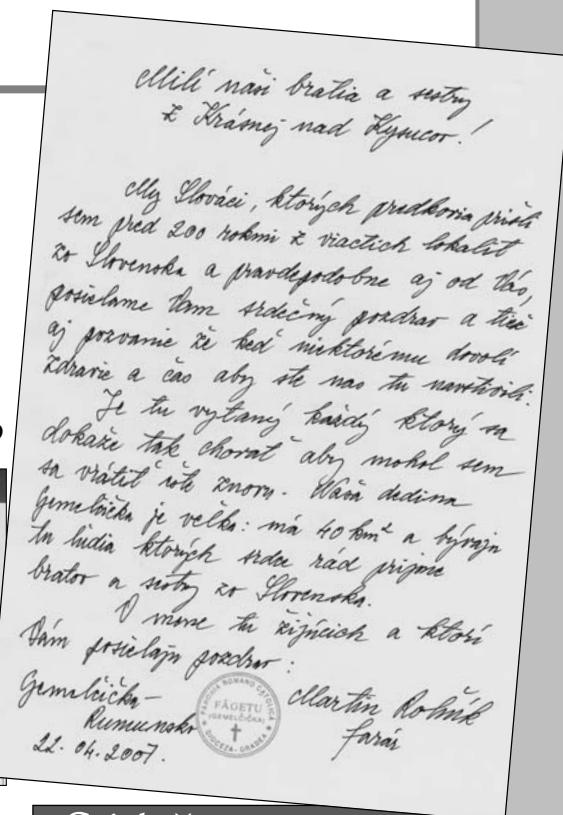 Milí naši bratia a sestry
z Krásnej nad Kysucou!
My Slováci, ktorých predkovia prišli
sem pred 200 rokmi z viactich lokalít
zo Slovenska a pravdepodobne aj od Vás,
posielame Vam srdečný pozdrav a tiež
aj pozvanie že keď niektorému dovolí
zdravie a čas aby ste nas tu navštivili.
Je tu vytaný každý ktorý sa
dokaže tak chovať aby mohol sem
sa vrátiť ešte znovu. Naša dedina
Gemelčička je velka: má 40 km² a bývaju
tu ľudia ktorých srdce rád prijme
bratov a sestry zo Slovenska.
V mene tu žijúcich a ktorí
Vám posielaju pozdrav:
Gemelčička-
Rumunsko
22. 04. 2007.
PAROHIA ROMANO CATOLICĂ
FĂGETU
(GEMELČIČKA)
DIOCEZA-ORADEA
Martin Rolník
farár